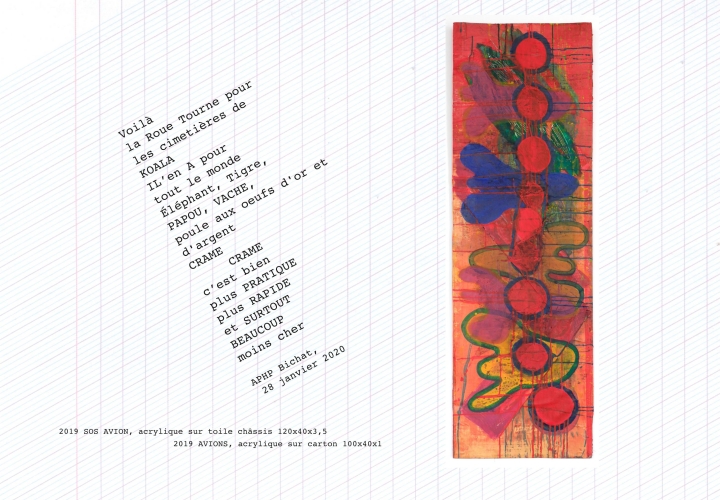 Voilà
la Roue Tourne pour
les cimetières de
KOALA
IL'en A pour
tout le monde
Éléphant, Tigre,
PAPOU, VACHE,
poule aux oeufs d'or et
d'argent
CRAME
CRAME
c'est bien
plus PRATIQUE
plus RAPIDE
et SURTOUT
BEAUCOUP
moins cher
APHP Bichat,
28 janvier 2020
2019 SOS AVION, acrylique sur toile châssis 120x40x3,5
2019 AVIONS, acrylique sur carton 100x40x1